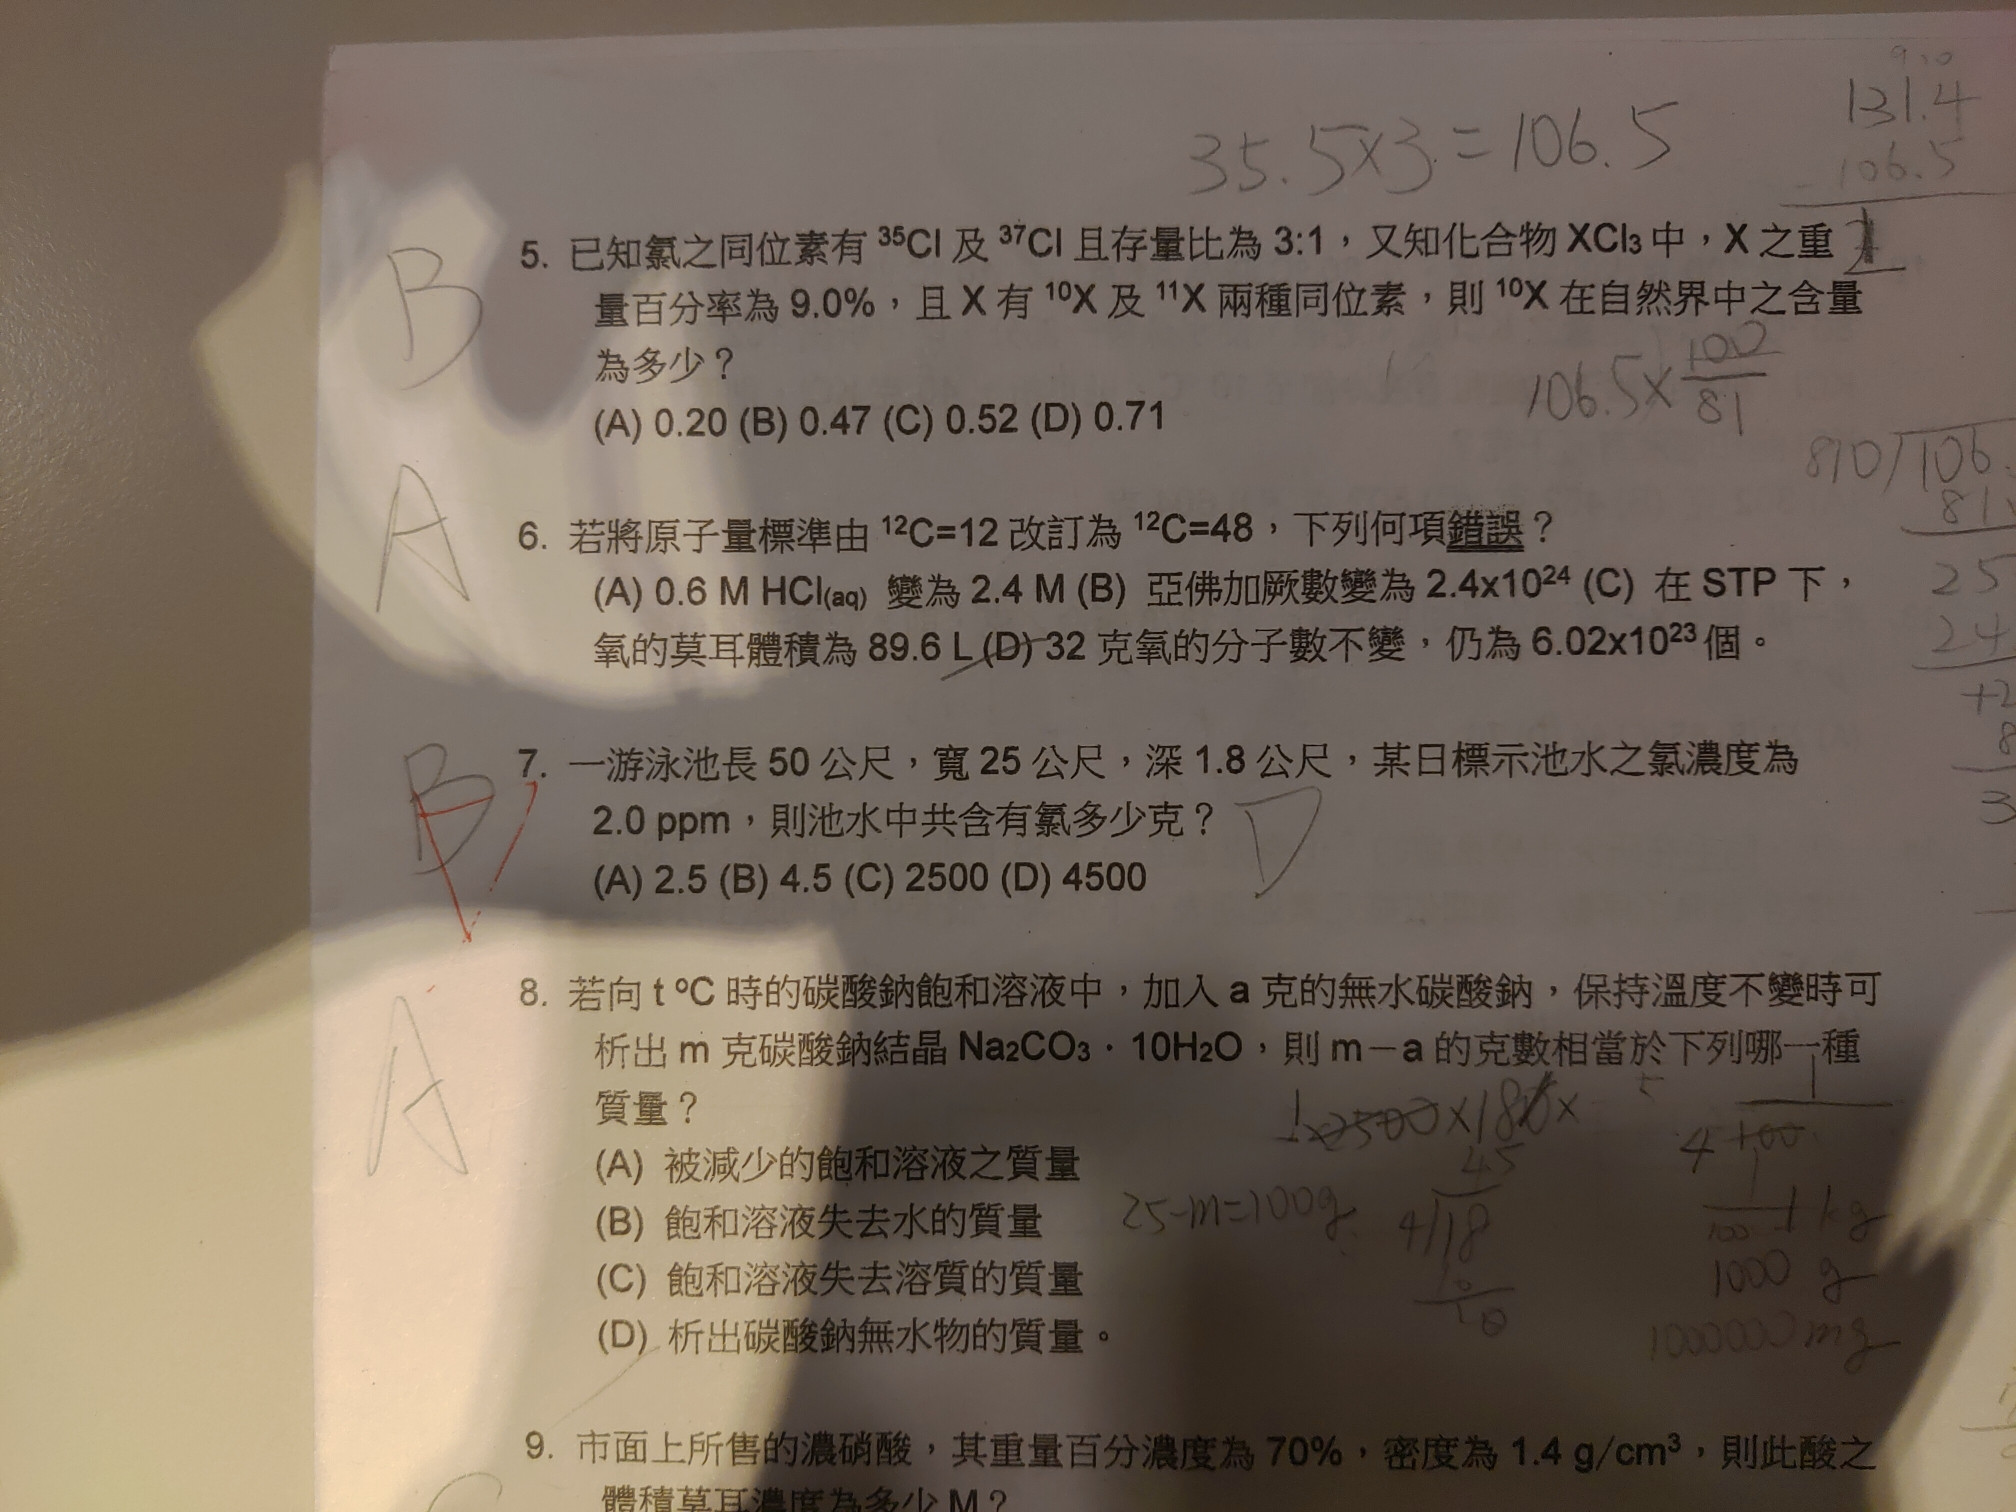 35.5×3=106.5
131.4
-106.5
B
5. 已知氯之同位素有 ³⁵Cl 及 ³⁷Cl 且存量比為 3:1，又知化合物 XCl₃ 中，X 之重
量百分率為 9.0%，且 X 有 ¹⁰X 及 ¹¹X 兩種同位素，則 ¹⁰X 在自然界中之含量
為多少？
106.5×100/81
(A) 0.20 (B) 0.47 (C) 0.52 (D) 0.71
810/106.
81
25
24
A
6. 若將原子量標準由 ¹²C=12 改訂為 ¹²C=48，下列何項錯誤？
(A) 0.6 M HCl(aq) 變為 2.4 M (B) 亞佛加厥數變為 2.4x10²⁴ (C) 在 STP 下，
氧的莫耳體積為 89.6 L (D) 32 克氧的分子數不變，仍為 6.02x10²³ 個。
+2
8
3
B
7. 一游泳池長 50 公尺，寬 25 公尺，深 1.8 公尺，某日標示池水之氯濃度為
2.0 ppm，則池水中共含有氯多少克？ D
(A) 2.5 (B) 4.5 (C) 2500 (D) 4500
A
8. 若向 t ºC 時的碳酸鈉飽和溶液中，加入 a 克的無水碳酸鈉，保持溫度不變時可
析出 m 克碳酸鈉結晶 Na₂CO₃．10H₂O，則 m－a 的克數相當於下列哪一種
質量？
(A) 被減少的飽和溶液之質量
(B) 飽和溶液失去水的質量
(C) 飽和溶液失去溶質的質量
(D) 析出碳酸鈉無水物的質量。
45
4/18
1000 g
1000000 mg
9. 市面上所售的濃硝酸，其重量百分濃度為 70%，密度為 1.4 g/cm³，則此酸之
體積莫耳濃度為多少 M？